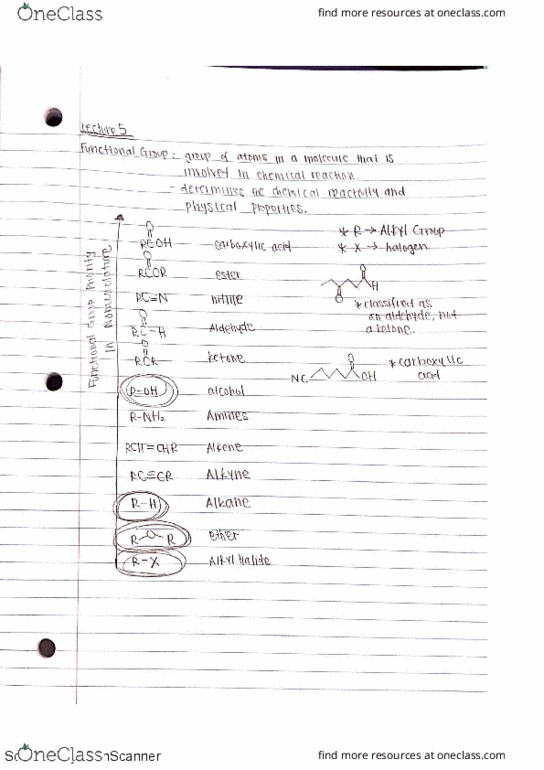 OneClass
find more resources at oneclass.com
Lecture 5
Functional Group: group of atoms in a molecule that is
involved in chemical reaction.
- determines the chemical reactivity and
physical properties.
Functional Group Priority
in Nomenclature
O
RCOH carboxylic acid
* R → Alkyl Group
* X → halogen
O
RCOR ester
RC≡N nitrile
O
RC-H Aldehyde
O
RCR ketone
O
H
O
* classified as
an aldehyde, not
a ketone.
R-OH alcohol
NC
O
OH
* carboxylic
acid
R-NH₂ Amines
RCH=CHR Alkene
RC≡CR Alkyne
R-H Alkane
R O R Ether
R-X Alkyl Halide
OneClass
Scanner
find more resources at oneclass.com